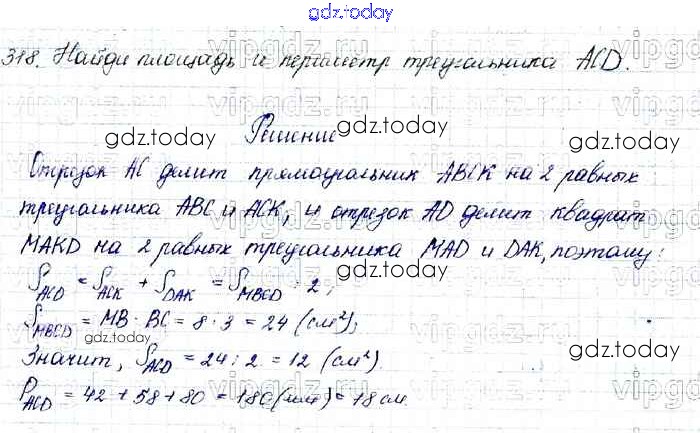 gdz.today
318. Найди площадь и периметр треугольника ACD.
Решение
Отрезок AC делит прямоугольник ABCK на 2 равных
треугольника ABC и ACK, и отрезок AD делит квадрат
MAKD на 2 равных треугольника MAD и DAK, поэтому:
S ACD = S ACK + S DAK = S MBCD : 2;
S MBCD = MB · BC = 8 · 3 = 24 (см²);
Значит, S ACD = 24 : 2 = 12 (см²).
P ACD = 42 + 58 + 80 = 180 (мм) = 18 см
gdz.today
gdz.today
gdz.today
gdz.today
gdz.today
gdz.today
gdz.today
gdz.today